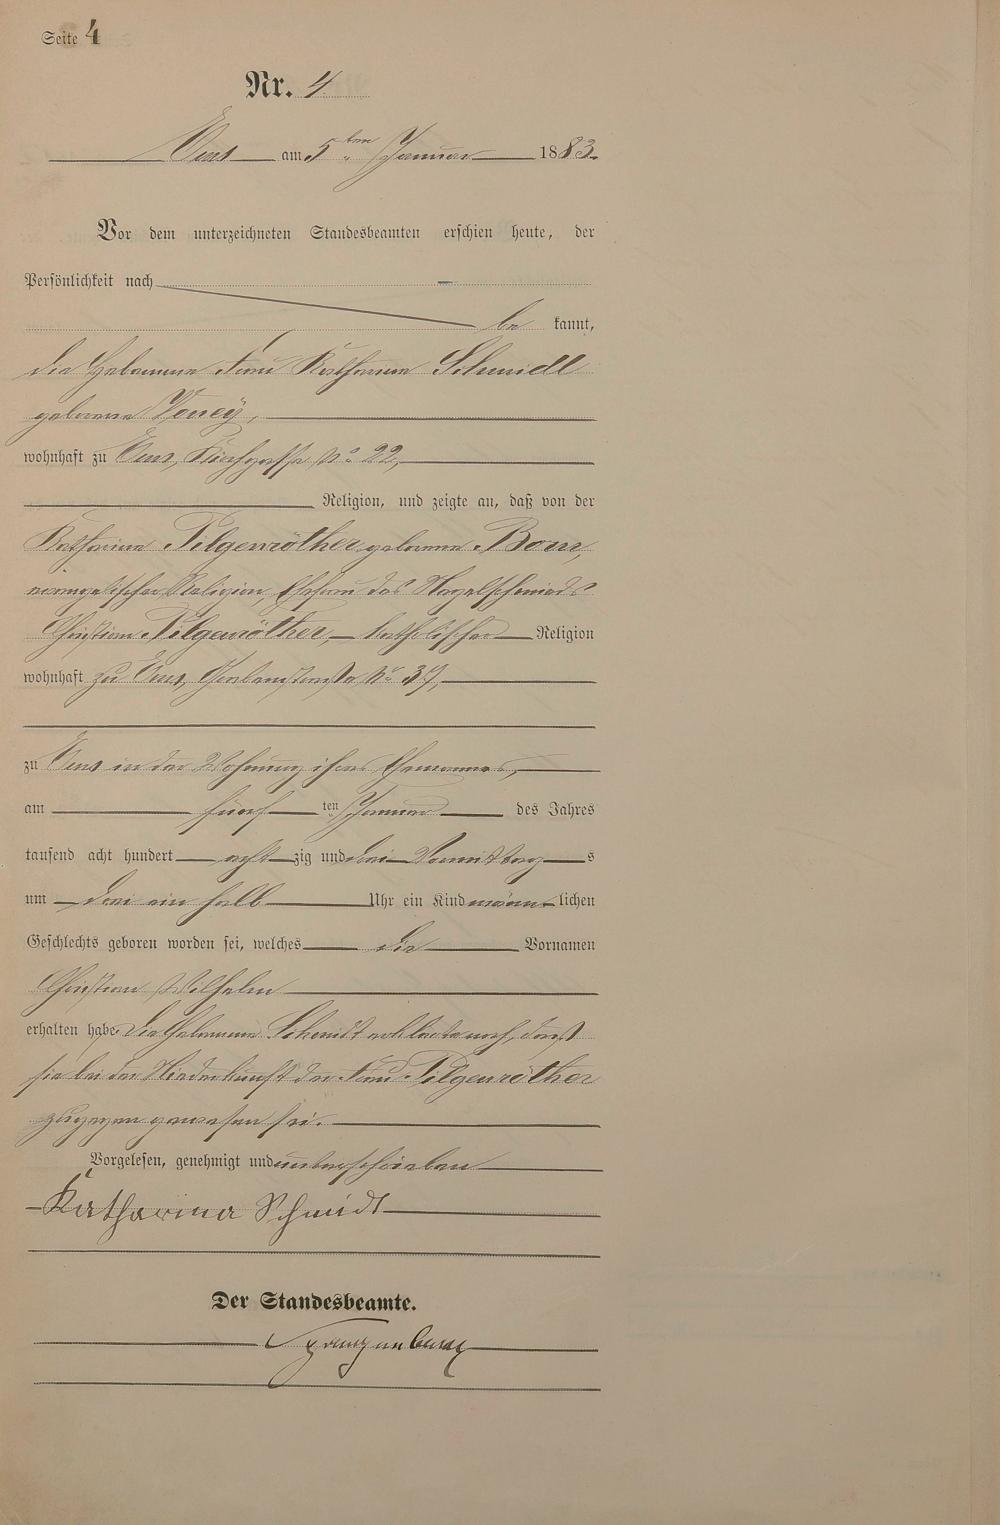 Seite 4
Nr. 4
Ems am 5ten Januar 1883.
Vor dem unterzeichneten Standesbeamten erschien heute, der
Persönlichkeit nach
be kannt,
die Hebamme Frau Katharina Schmidt
geborene
wohnhaft zu Ems, Kirchgasse No 22,
Religion, und zeigte an, daß von der
Katharina Pilgenröther geborene Born,
evangelischer Religion, Ehefrau des Nagelschmieds
Christian Pilgenröther, katholischer Religion
wohnhaft zu Ems, No 37,
zu Ems in der Wohnung ihres Ehemannes,
am fünf ten Januar des Jahres
tausend acht hundert acht zig und drei Vormittag s
um drei ein halb Uhr ein Kind männ lichen
Geschlechts geboren worden sei, welches die Vornamen
Christian Wilhelm
erhalten habe. Die Hebamme Schmidt erklärte noch, daß
sie bei der Niederkunft der Frau Pilgenröther
zugegen gewesen sei.
Vorgelesen, genehmigt und unterschrieben
Katharina Schmidt
Der Standesbeamte.